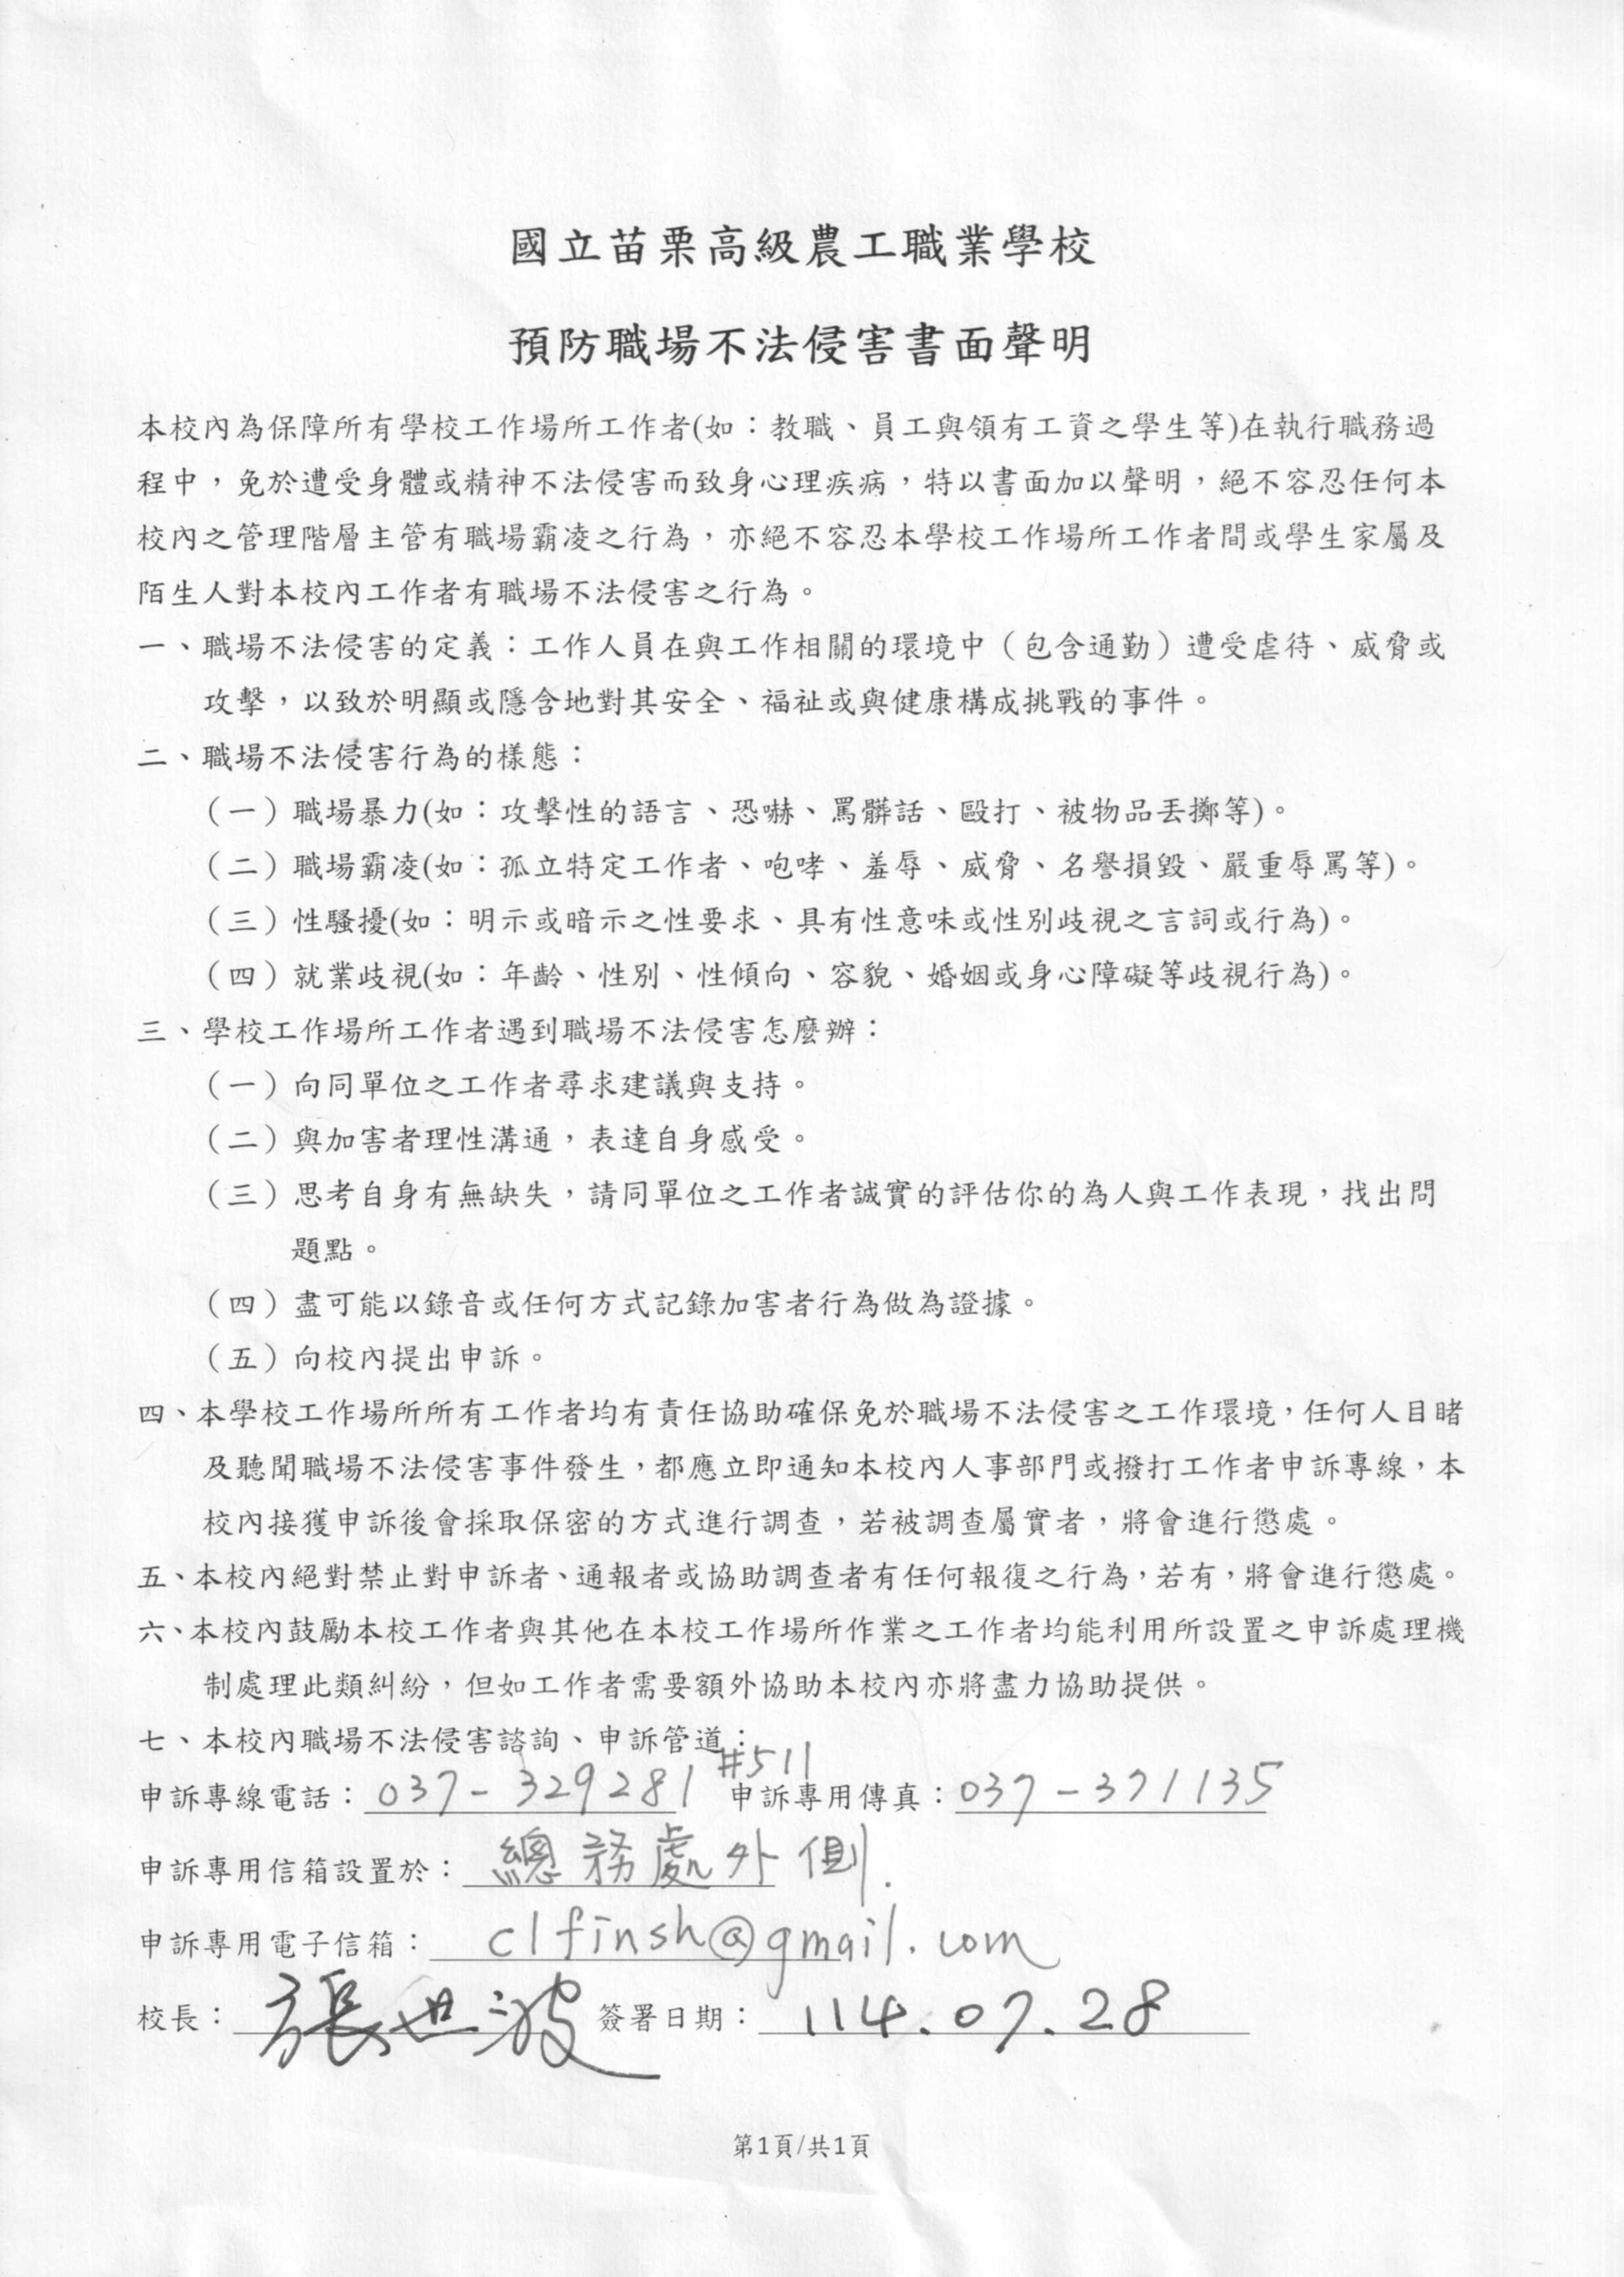 國立苗栗高級農工職業學校
預防職場不法侵害書面聲明
本校內為保障所有學校工作場所工作者(如：教職、員工與領有工資之學生等)在執行職務過
程中，免於遭受身體或精神不法侵害而致身心理疾病，特以書面加以聲明，絕不容忍任何本
校內之管理階層主管有職場霸凌之行為，亦絕不容忍本學校工作場所工作者間或學生家屬及
陌生人對本校內工作者有職場不法侵害之行為。
一、職場不法侵害的定義：工作人員在與工作相關的環境中（包含通勤）遭受虐待、威脅或
攻擊，以致於明顯或隱含地對其安全、福祉或與健康構成挑戰的事件。
二、職場不法侵害行為的樣態：
（一）職場暴力(如：攻擊性的語言、恐嚇、罵髒話、毆打、被物品丟擲等)。
（二）職場霸凌(如：孤立特定工作者、咆哮、羞辱、威脅、名譽損毀、嚴重辱罵等)。
（三）性騷擾(如：明示或暗示之性要求、具有性意味或性別歧視之言詞或行為)。
（四）就業歧視(如：年齡、性別、性傾向、容貌、婚姻或身心障礙等歧視行為)。
三、學校工作場所工作者遇到職場不法侵害怎麼辦：
（一）向同單位之工作者尋求建議與支持。
（二）與加害者理性溝通，表達自身感受。
（三）思考自身有無缺失，請同單位之工作者誠實的評估你的為人與工作表現，找出問
題點。
（四）盡可能以錄音或任何方式記錄加害者行為做為證據。
（五）向校內提出申訴。
四、本學校工作場所所有工作者均有責任協助確保免於職場不法侵害之工作環境，任何人目睹
及聽聞職場不法侵害事件發生，都應立即通知本校內人事部門或撥打工作者申訴專線，本
校內接獲申訴後會採取保密的方式進行調查，若被調查屬實者，將會進行懲處。
五、本校內絕對禁止對申訴者、通報者或協助調查者有任何報復之行為，若有，將會進行懲處。
六、本校內鼓勵本校工作者與其他在本校工作場所作業之工作者均能利用所設置之申訴處理機
制處理此類糾紛，但如工作者需要額外協助本校內亦將盡力協助提供。
七、本校內職場不法侵害諮詢、申訴管道：
申訴專線電話：037-329281 #511 申訴專用傳真：037-371135
申訴專用信箱設置於：總務處外側.
申訴專用電子信箱：clfinsh@gmail.com
校長：張世波 簽署日期：114.07.28
第1頁/共1頁